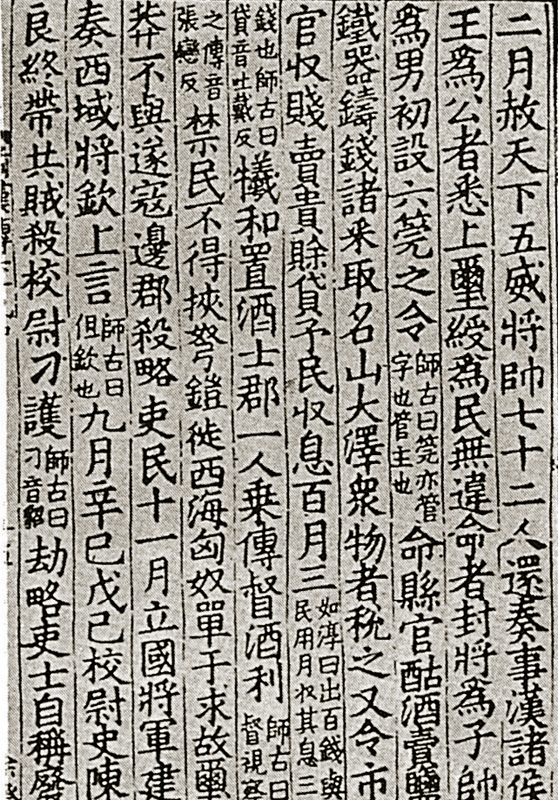 二月赦天下五威將帥七十二人還奏事漢諸侯
王為公者悉上璽綬為民無違命者封將為子帥
為男初設六筦之令師古曰筦亦管字也管主也命縣官酤酒賣鹽
鐵器鑄錢諸采取名山大澤衆物者稅之又令市
官収賤賣貴賖貸予民収息百月三如淳曰出百錢與民用月収其息三
錢也師古曰貸音吐戴反犧和置酒士郡一人乗傳督酒利師古曰督視察
之傳音張戀反禁民不得挾弩鎧徙西海匈奴單于求故璽
莽不與遂寇邊郡殺略吏民十一月立國將軍建
奏西域將欽上言師古曰但欽也九月辛巳戊己校尉史陳
良終帶共賊殺校尉刁護師古曰刁音貂劫略吏士自稱廢